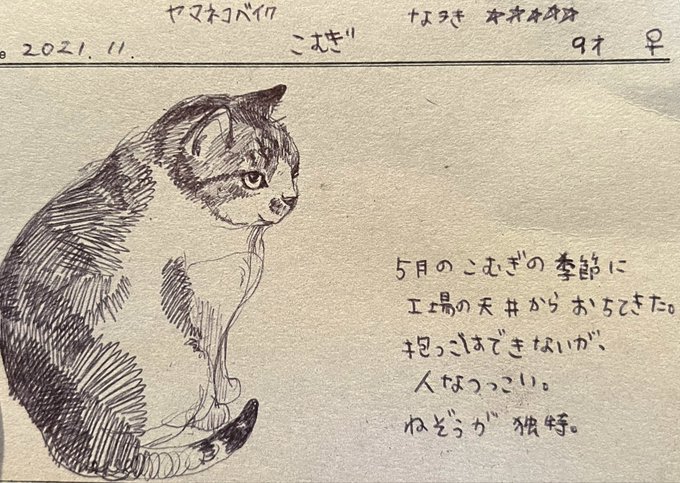 ヤマネコバイク なつき ☆☆☆☆☆
2021.11. こむぎ 9才 ♀
5月のこむぎの季節に
工場の天井からおちてきた。
抱っこはできないが、
人なつっこい。
ねぞうが独特。